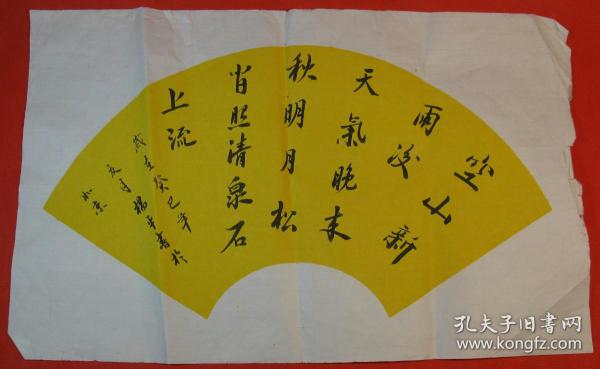 空山新
雨後
天氣晚来
秋明月松
间照清泉石
上流
癸巳年
夏月楊平書於
北京
孔夫子旧书网
www.kongfz.com